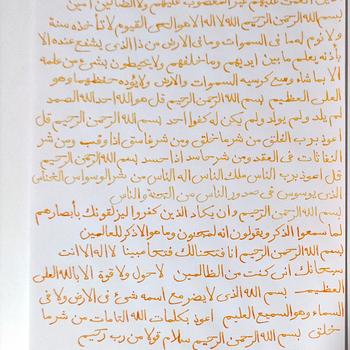 انعمت عليهم غير المغضوب عليهم ولا الضالين امين
بسم الله الرحمن الرحيم الله لا اله الا هو الحي القيوم لا تأخذه سنة
ولا نوم له ما في السموات وما في الارض من ذا الذي يشفع عنده الا
بأذنه يعلم ما بين ايديهم وما خلفهم ولا يحيطون بشيء من علمه
الا بما شاء وسع كرسيه السموات والارض ولا يؤده حفظهما وهو
العلي العظيم بسم الله الرحمن الرحيم قل هو الله احد الله الصمد
لم يلد ولم يولد ولم يكن له كفوا احد بسم الله الرحمن الرحيم قل
اعوذ برب الفلق من شر ما خلق ومن شر غاسق اذا وقب ومن شر
النفاثات في العقد ومن شر حاسد اذا حسد بسم الله الرحمن الرحيم
قل اعوذ برب الناس ملك الناس اله الناس من شر الوسواس الخناس
الذي يوسوس في صدور الناس من الجنة والناس
بسم الله الرحمن الرحيم وان يكاد الذين كفروا ليزلقونك بأبصارهم
لما سمعوا الذكر ويقولون انه لمجنون وما هو الا ذكر للعالمين
بسم الله الرحمن الرحيم انا فتحنا لك فتحا مبينا لا اله الا انت
سبحانك اني كنت من الظالمين لا حول ولا قوة الا بالله العلي
العظيم بسم الله الذي لا يضر مع اسمه شيء في الارض ولا في
السماء وهو السميع العليم اعوذ بكلمات الله التامات من شر ما
خلق بسم الله الرحمن الرحيم سلام قولا من رب رحيم